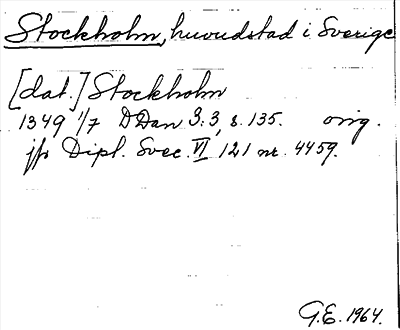 Stockholm, huvudstad i Sverige
[dat.] Stockholm
1349 1/7 DDan 3:3, s. 135. orig.
jfr Dipl. Svec. VI 121 nr. 4459.
G.E. 1964.